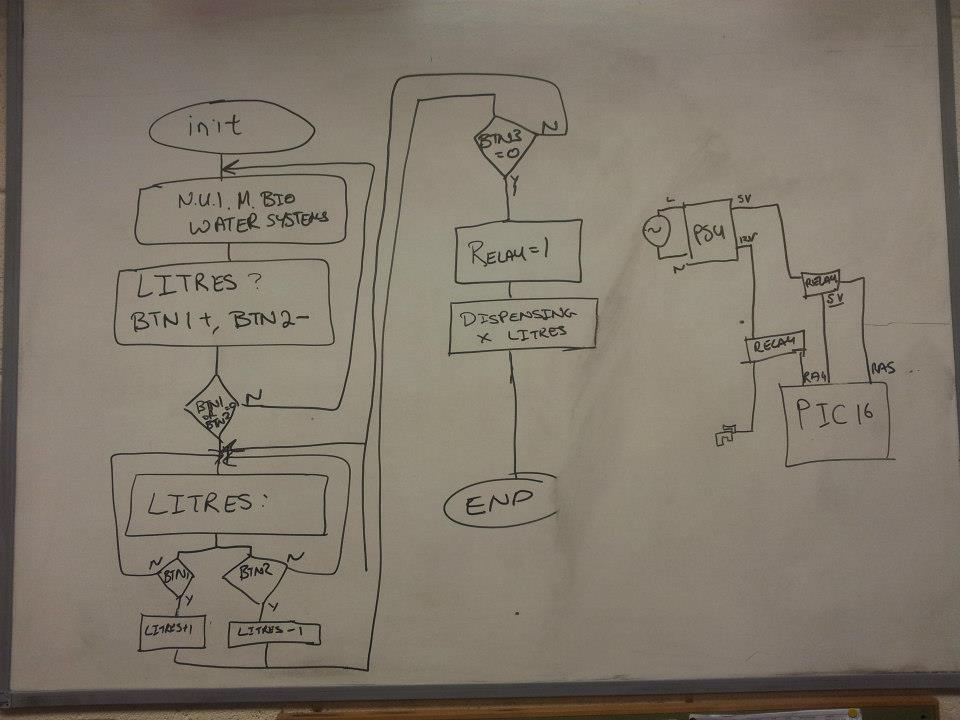 init
N.U.I.M. BIO
WATER SYSTEMS
LITRES?
BTN1+, BTN2-
BTN1
OR
BTN2=0
N
LITRES:
N
BTN1
Y
LITRES+1
BTN2
N
Y
LITRES-1
BTN3
=0
N
Y
RELAY=1
DISPENSING
X LITRES
END
L
N
PSU
5V
12V
RELAY
5V
RELAY
RA4
RA5
PIC16